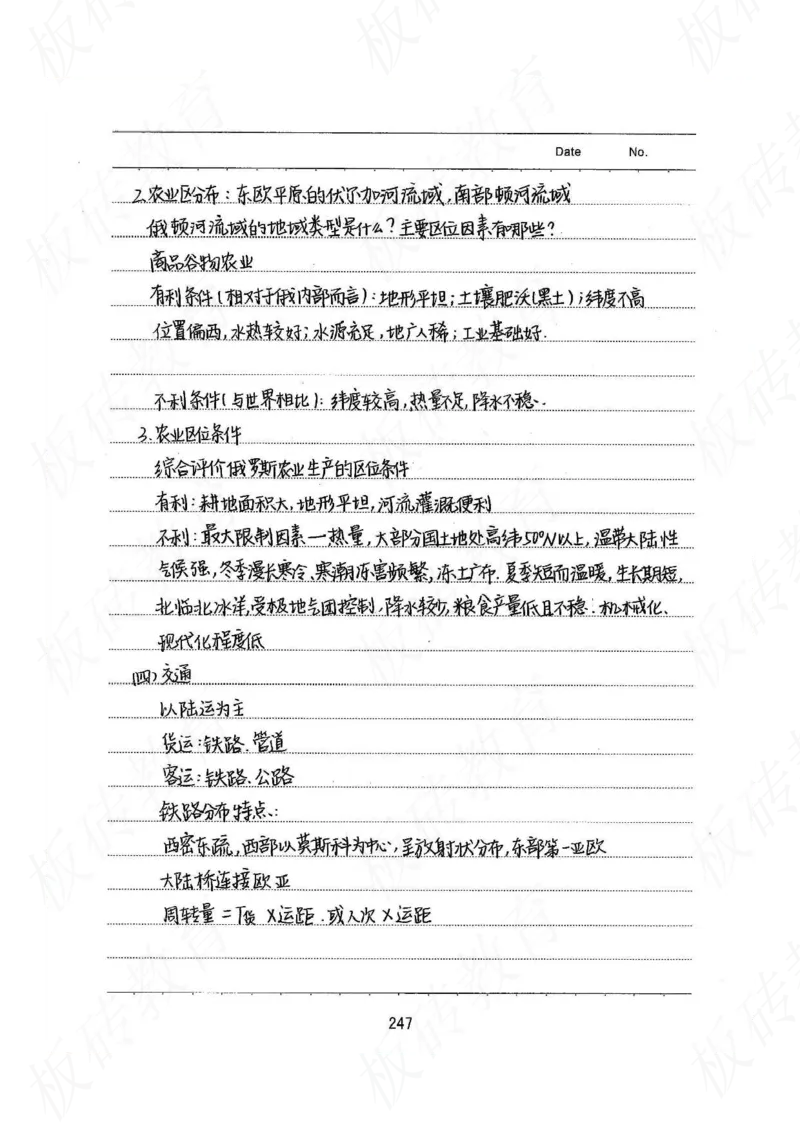 Date No.
2.农业区分布：东欧平原的伏尔加河流域，南部顿河流域
俄顿河流域的地域类型是什么？主要区位因素有哪些？
商品谷物农业
有利条件（相对于俄内部而言）：地形平坦；土壤肥沃（黑土）；纬度不高
位置偏西，水热较好；水源充足，地广人稀；工业基础好.
不利条件（与世界相比）：纬度较高，热量不足，降水不稳.
3.农业区位条件
综合评价俄罗斯农业生产的区位条件
有利：耕地面积大，地形平坦，河流灌溉便利
不利：最大限制因素—热量，大部分国土地处高纬50°N以上，温带大陆性
气候强，冬季漫长寒冷、寒潮冻害频繁，冻土广布.夏季短而温暖，生长期短，
北临北冰洋，受极地气团控制，降水较少，粮食产量低且不稳：机械化、
现代化程度低
(四)交通
以陆运为主
货运：铁路、管道
客运：铁路、公路
铁路分布特点：
西密东疏，西部以莫斯科为中心，呈放射状分布，东部第一亚欧
大陆桥连接欧亚
周转量=T货×运距.或人次×运距
247
板砖教育